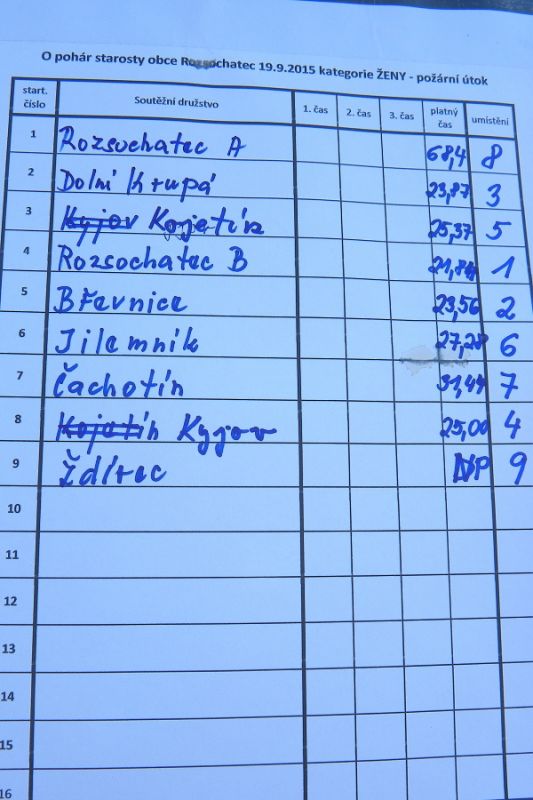 O pohár starosty obce Rozsochatec 19.9.2015 kategorie ŽENY - požární útok
start. číslo Soutěžní družstvo 1. čas 2. čas 3. čas platný čas umístění
1 Rozsochatec A 68,4 8
2 Dolní Krupá 23,87 3
3 Kyjov Kojetín 25,37 5
4 Rozsochatec B 21,84 1
5 Břevnice 23,56 2
6 Jilemník 27,28 6
7 Čachotín 31,44 7
8 Kojetín Kyjov 25,00 4
9 Ždírec NP 9
10
11
12
13
14
15
16